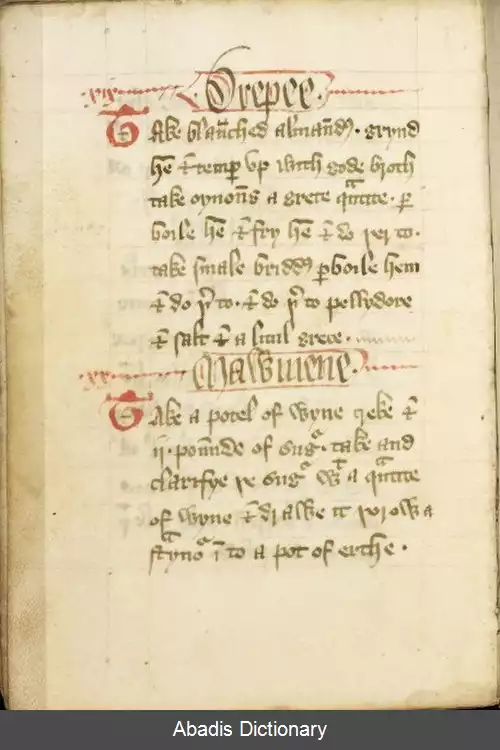 .xix. Drepee.
Take blanched almand. grynd
hem & temp vp with gode broth
take oynons a grete quantite. p
boile hem & fry hem & do þerto.
take smale bridd pboile hem
& do þto. & do þto pellydore
& salt & a litul grece.
.xx. Mawmene.
Take a potel of wyne greke &
ii. pounde of sug. take and
clarifye þe sug wt a quantite
of wyne & drawe it þorow a
styno in to a pot of erthe.
Abadis Dictionary